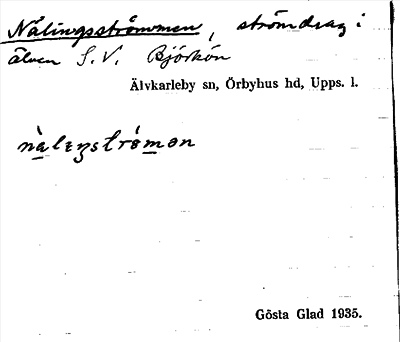 Nålingsströmmen, strömdrag i
älven S.V. Björkön
Älvkarleby sn, Örbyhus hd, Upps. l.
nàlɪŋstrǿmən
Gösta Glad 1935.